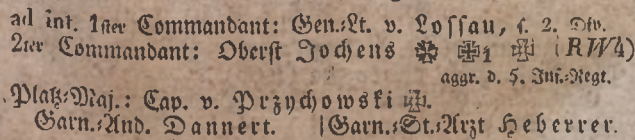 ad int. 1ster Commandant: Gen.-Lt. v. Lossau, s. 2. Div.
2ter Commandant: Oberst Jochens ✠ ✠1 ✠ (RW4)
aggr. d. 5. Inf.-Regt.
Platz-Maj.: Cap. v. Przychowski ✠.
Garn.-Aud. Dannert. | Garn.-St.-Arzt Heberrer.